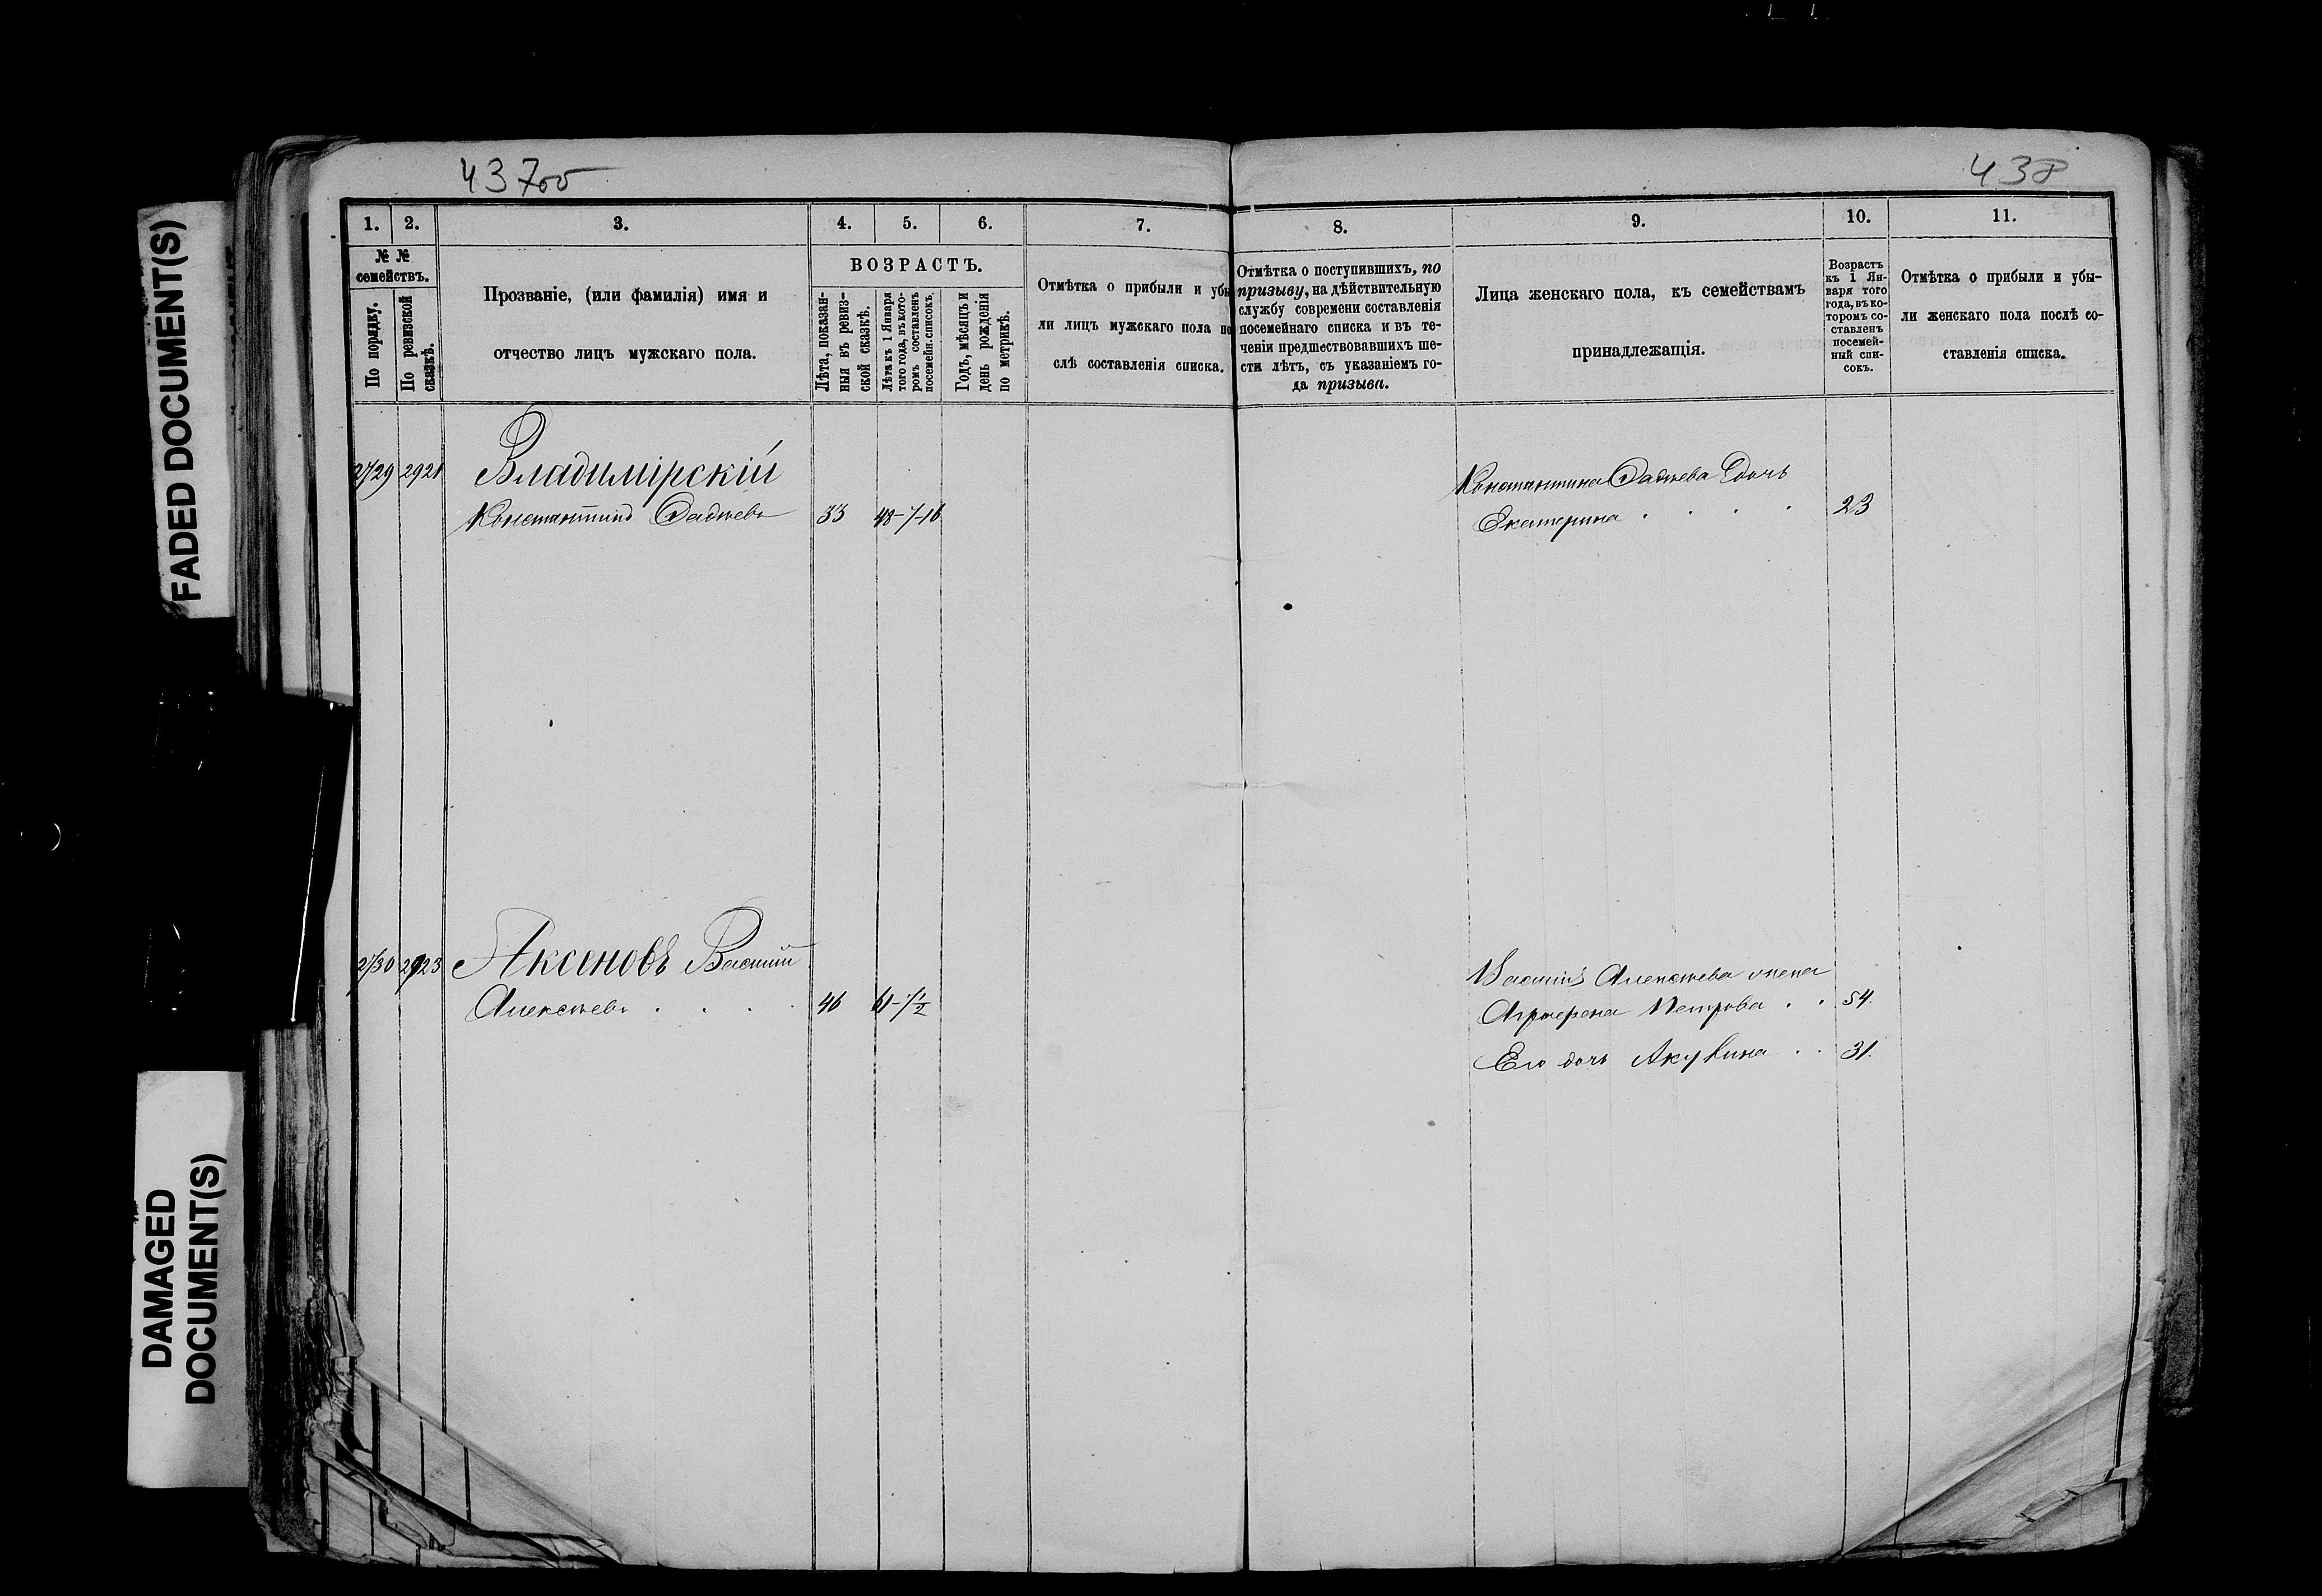 43700
438
FADED DOCUMENT(S)
DAMAGED
DOCUMENT(S)
1.
2.
3.
4.
5.
6.
7.
8.
9.
10.
11.
№ №
семействъ.
По порядку.
По ревизской
сказкѣ.
Прозваніе, (или фамилія) имя и
отчество лицъ мужскаго пола.
ВОЗРАСТЪ.
Лѣта, показан-
ныя въ ревиз-
ской сказкѣ.
Лѣта къ 1 Января
того года, въ кото-
ромъ составленъ
посемейн. списокъ.
Годъ, мѣсяцъ и
день рожденія
по метрикѣ.
Отмѣтка о прибыли и убы
ли лицъ мужскаго пола по
слѣ составленія списка.
Отмѣтка о поступившихъ, по
призыву, на дѣйствительную
службу современи составленія
посемейнаго списка и въ те-
ченіи предшествовавшихъ ше-
сти лѣтъ, съ указаніемъ го-
да призыва.
Лица женскаго пола, къ семействамъ
принадлежащія.
Возрастъ
къ 1 Ян-
варя того
года, въ ко-
торомъ со-
ставленъ
посемей-
ный спи-
сокъ.
Отмѣтка о прибыли и убы-
ли женскаго пола послѣ со-
ставленія списка.
2729 2921 Владимірскій
Константинъ 33 48-7-16
Константина дочь
Екатерина 23
2730 2923 Аксеновъ Василій
Алексѣевъ 46 61-7½
Василія Алексѣева жена
Агрефена Петрова 54.
Его дочь Акулина 31.